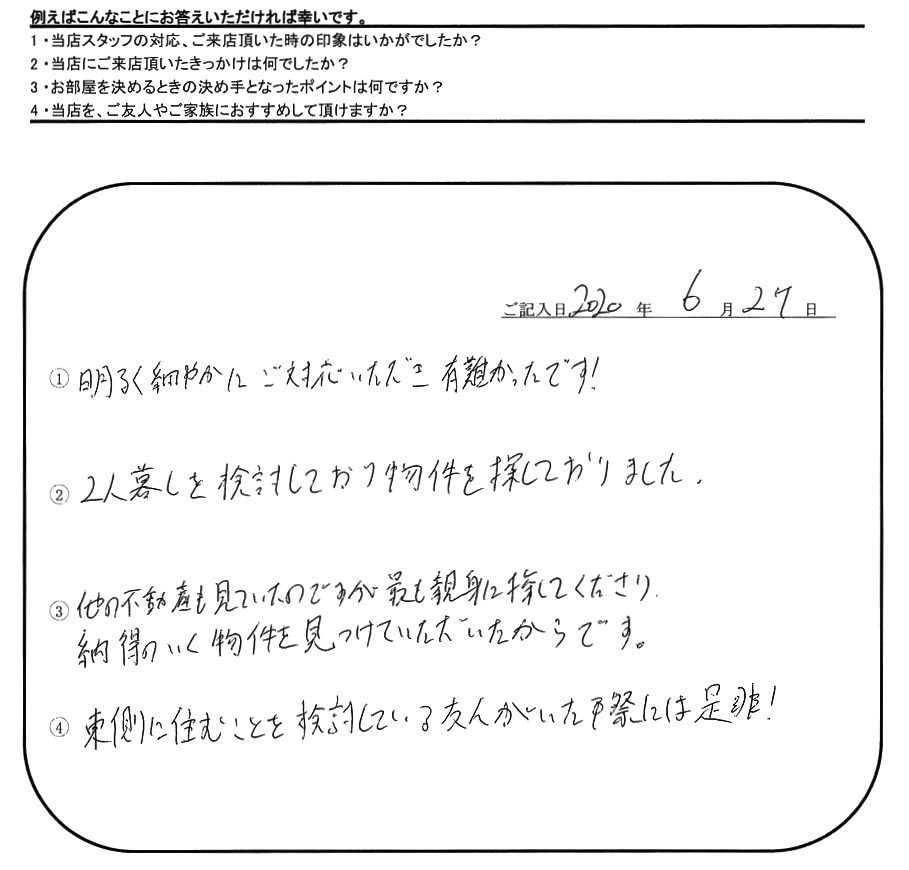 例えばこんなことにお答えいただければ幸いです。
1・当店スタッフの対応、ご来店頂いた時の印象はいかがでしたか？
2・当店にご来店頂いたきっかけは何でしたか？
3・お部屋を決めるときの決め手となったポイントは何ですか？
4・当店を、ご友人やご家族におすすめして頂けますか？
ご記入日2020年 6月27日
① 明るく細やかにご対応いただき有難かったです！
② 2人暮しを検討しており物件を探しておりました．
③ 他の不動産も見ていたのですが最も親身に探してくださり、
納得のいく物件を見つけていただいたからです。
④ 東側に住むことを検討している友人がいた際には是非！